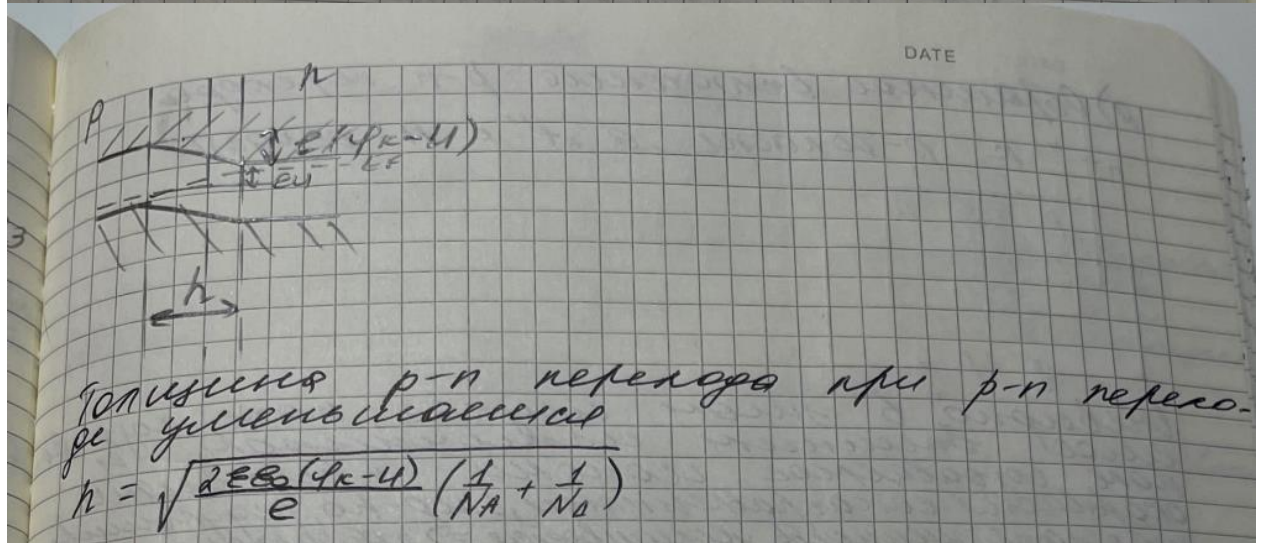 DATE
p
n
e(φк-U)
EF
eU
h
Толщина p-n перехода при p-n перехо-
де уменьшается
h = √(2εε₀(φк-U)/e (1/NA + 1/NД))
3